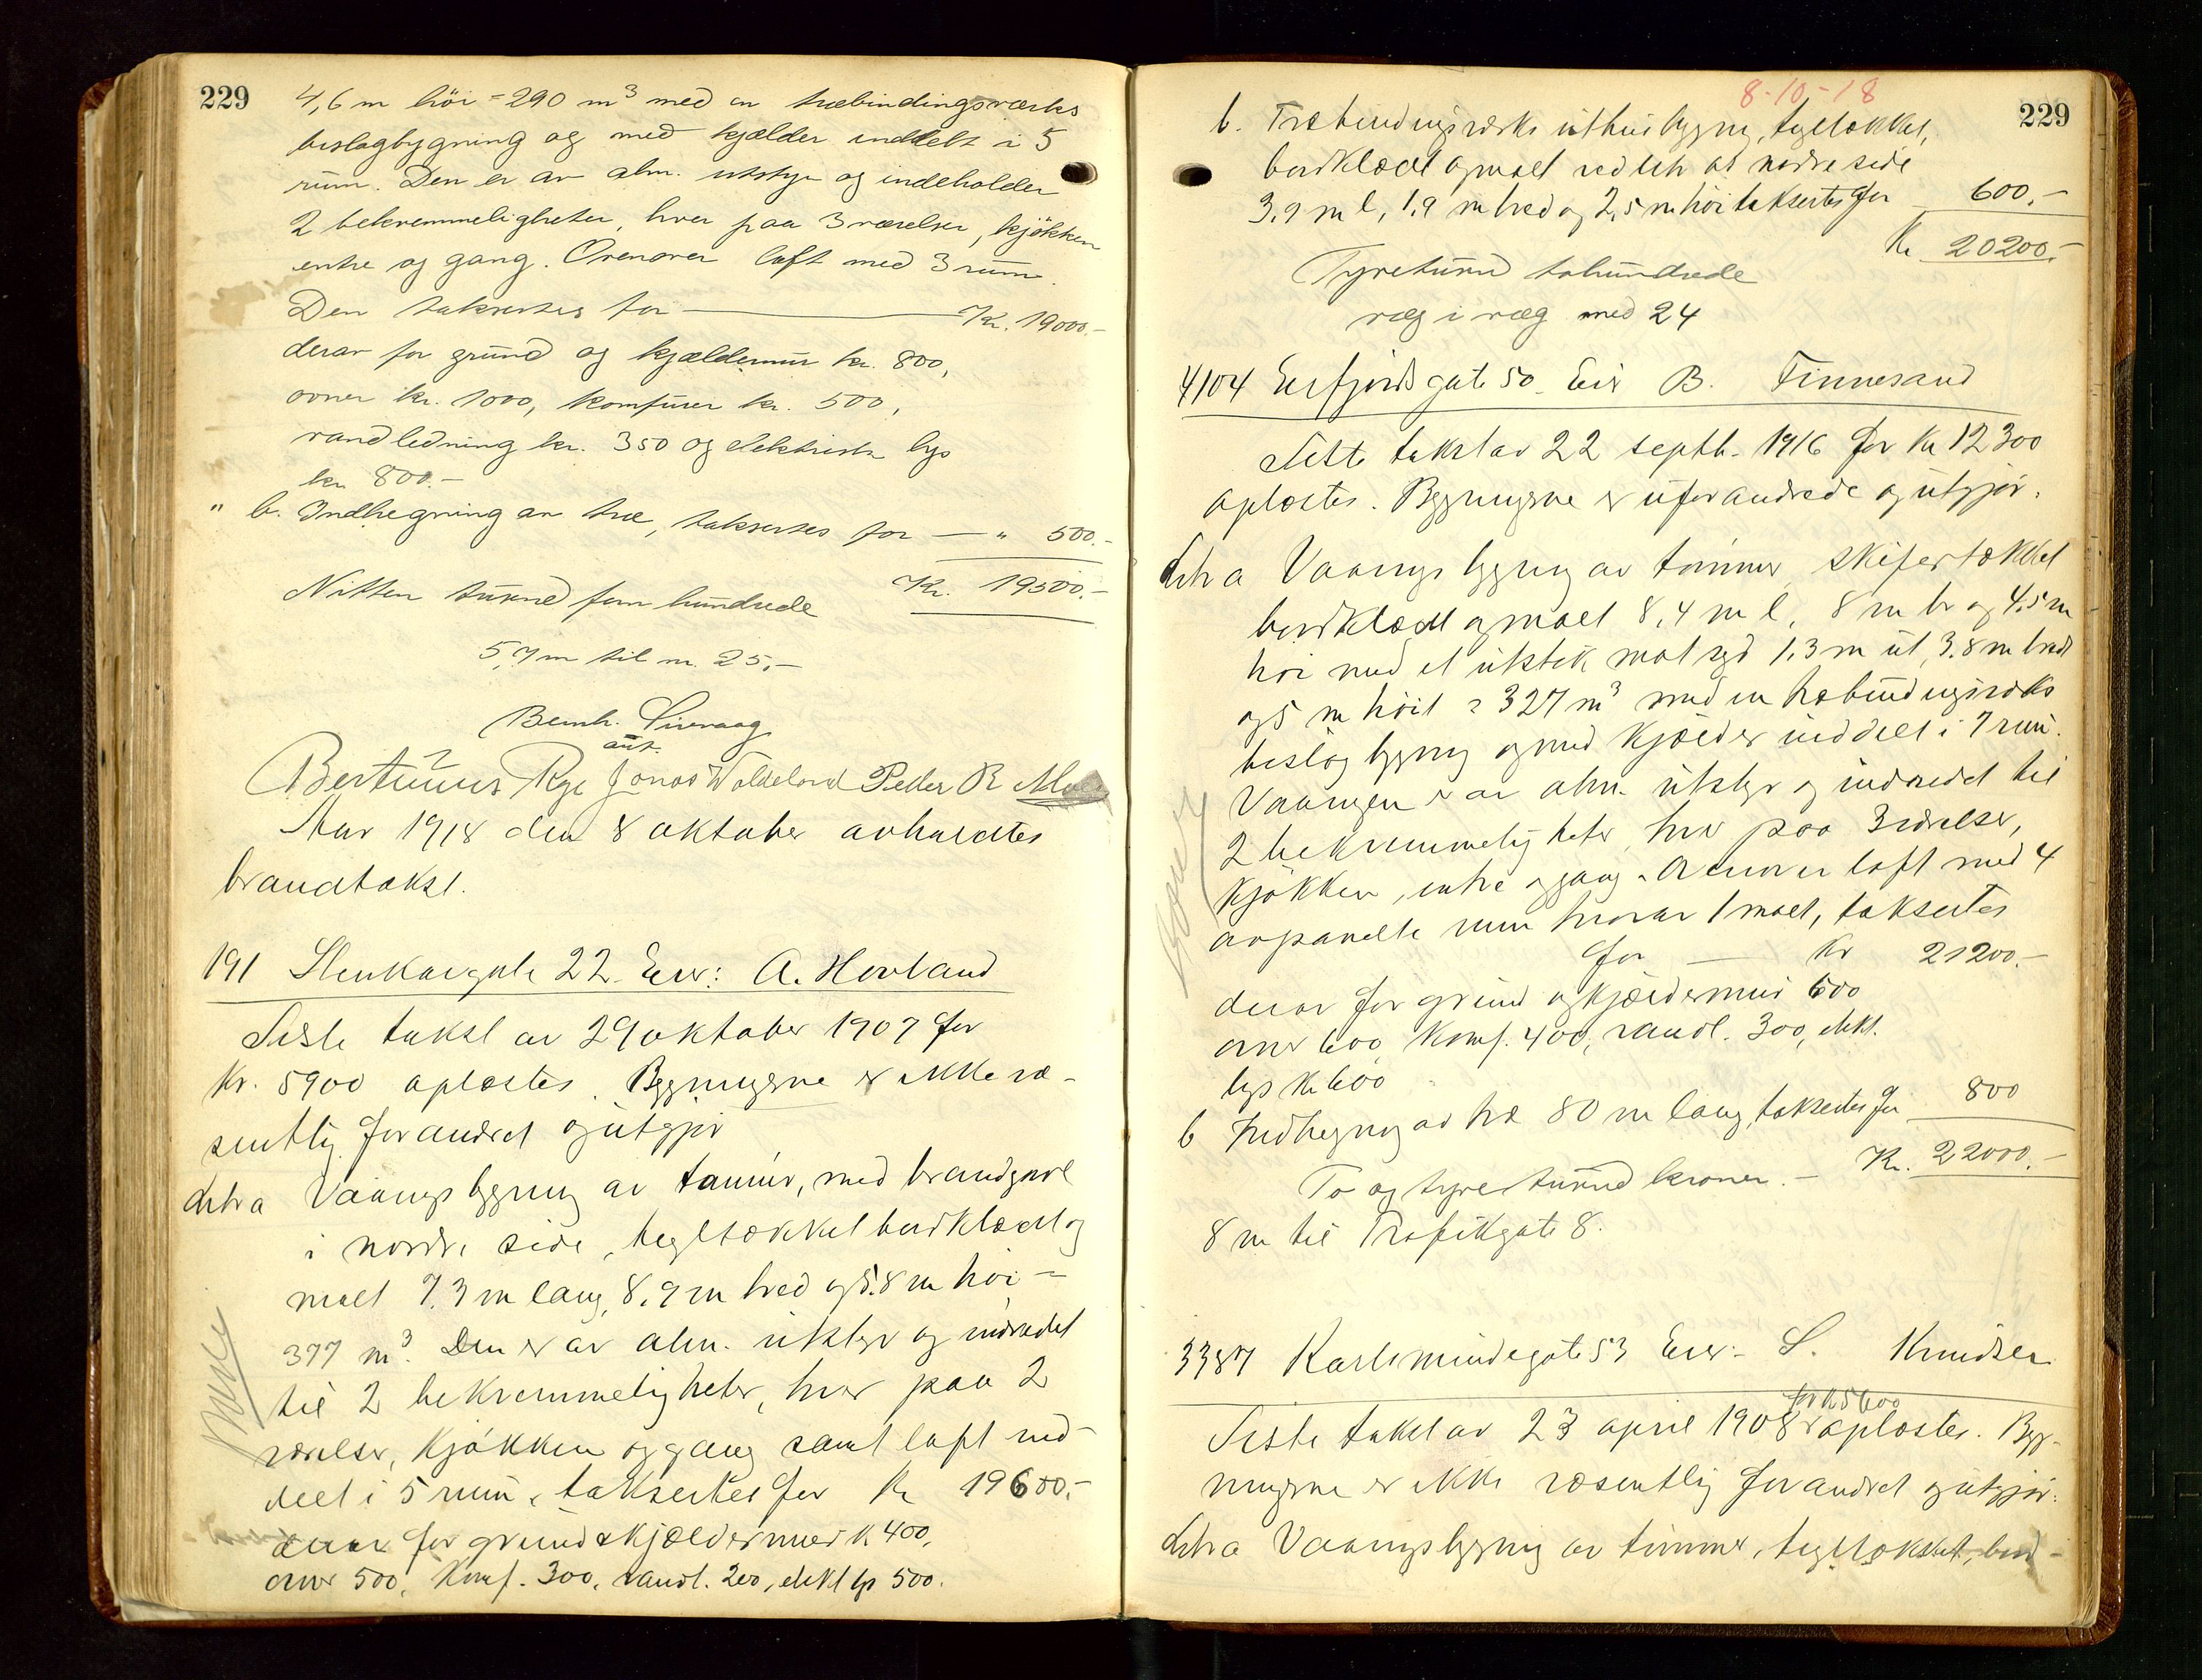 229
4,6 m höi = 290 m³ med en træbindingsværks
bislagbygning og med kjælder inddelt i 5
rum. Den er av alm. utstyr og indeholder
2 bekvemmeligheter, hver paa 3 værelser, kjökken
entre og gang. Ovenover loft med 3 rum.
Den takseres for — Kr. 19000.-
derav for grund og kjældermur kr. 800,
ovner kr. 1000, komfurer kr. 500,
vandledning kr. 350 og elektrisk lys
kr. 800.-
" b. Indhegning av træ, takseres for — " 500.-
Kr. 19500.-
Nitten tusend fem hundrede
5,7 m til nr. 25.-
Bernh.
ass.
Bertinius Rye Jonas Waldeland Peder R
Aar 1918 den 8 oktober avholdtes
brandtakst.
191 Stenkargate 22. Eier: A. Hovland
Siste takst av 29 oktober 1907 for
Kr. 5900 oplæstes. Bygningerne er ikke væ-
sentlig forandret og utgjör
Litra a Vaaningsbygning av tømmer, med brandgavl
i nordre side, tegltækket bordklædt og
malt 7.3 m lang, 8,9 m bred og 5.8 m höi =
377 m³. Den er av alm. utstyr og indredet
til 2 bekvemmeligheter, hver paa 2
værelser, kjökken og gang samt loft ind-
delt i 5 rum, taksertes for Kr 19600.-
derav for grund & kjældermur k 400,
ovner 500, Komf. 300, vandl. 200, elekt lys 500.
8-10-18
229
b. Træbindingsværks uthusbygning, tegltækket,
bordklædt og malt ved litr a's nordre side
3,9 m l, 1,9 m bred og 2,5 m höi taksertes for 600.-
Kr 20200.-
Tyvetusind tohundrede
væg i væg med 24
4104 Erfjordsgate 50. Eier B. Finnesand
Siste takst av 22 septb. 1916 for Kr 12300
oplæstes. Bygningerne er uforandrede og utgjör:
Litra a Vaaningsbygning av tömmer, skifertækket
bordklædt og malt 8,4 m l, 8 m br og 4,5 m
höi med et utstik mot syd 1.3 m ut, 3.8 m bredt
og 5 m höit = 327 m³ med en træbindingsværks
bislagbygning og med kjælder inddelt i 7 rum.
Vaaningen er av alm. utstyr og indredet til
2 bekvemmeligheter, hver paa 3 værelser,
kjökken, entre og gang. Ovenover loft med 4
avpanelte rum hvorav 1 malt, taksertes
for — Kr 21200.-
derav for grund og kjældermur 600
ovner 600, Komf. 400, vandl. 300, elekt.
lys Kr 600
b Indhegning av træ 80 m lang, taksertes for 800
Kr. 22000.-
To og tyve tusend kroner.-
8 m til Trafikgate 8.
3387 Karlsmindegate 53 Eier: S. Knudsen
for Kr 5600
Siste takst av 23 april 1908 oplæstes. Byg-
ningerne er ikke væsentlig forandret og utgjör:
Litra a Vaaningsbygning av tömmer, tegltækket, bord-